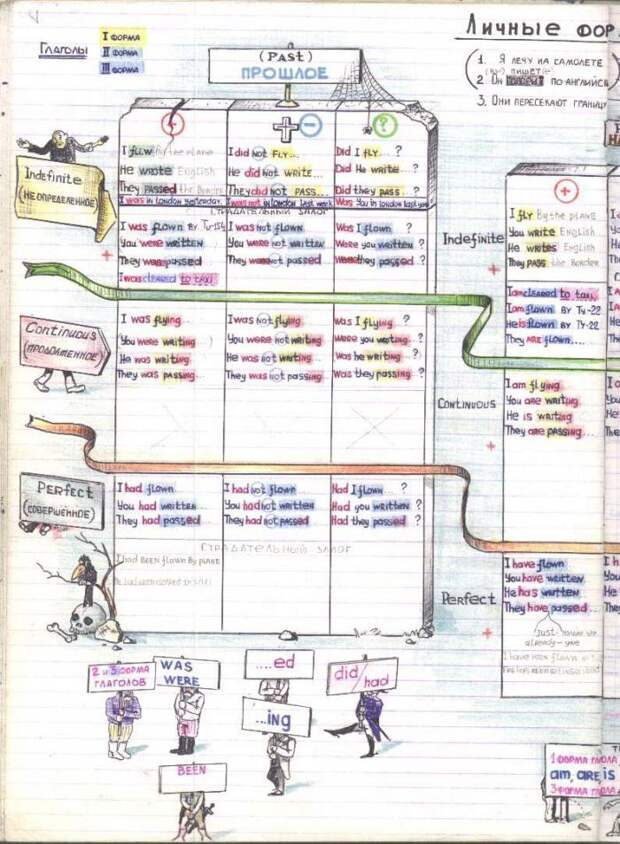 Личные фор
Глаголы
I форма
II форма
III форма
(Past)
ПРОШЛОЕ
1. Я лечу на самолете
2 Он по-английск
3. Они пересекают границу
+
+ -
?
Indefinite
(неопределенное)
I flew by the plane
He wrote English
They passed the Border
I was in London yesterday.
I did not fly...
He did not write...
They did not pass...
I was not in London last week
Did I fly... ?
Did He write... ?
Did they pass ... ?
Was You in London last year
страдательный залог
I was flown by Tu-154
You were written
They were passed
I was cleared to taxi
I was not flown
You were not written
They were not passed
Was I flown ?
Were you written ?
Were they passed ?
Continuous
(продолженное)
I was flying...
You were writing
He was writing
They was passing...
I was not flying...
You were not writing
He was not writing
They was not passing...
Was I flying... ?
Were you writing.. ?
Was he writing ?
Was they passing ?
Perfect
(совершённое)
I had flown...
You had written...
They had passed...
I had not flown
You had not written
They had not passed
Had I flown... ?
Had you written ?
Had they passed ?
Страдательный залог
I had been flown by plane
Indefinite
+
I fly By the plane
You write English
He writes English
They pass the Border
I am cleared to taxi
I am flown by Ty-22
He is flown by Ty-22
They are flown....
Continuous
I am flying
You are writing
He is writing
They are passing...
Perfect
I have flown
You have written
He has written
They have passed...
just-
already-уже
2 и 3 форма
глаголов
WAS
WERE
....ed
did/
had
...ing
BEEN
1 форма глагола
am, are, is
3 форма глагола